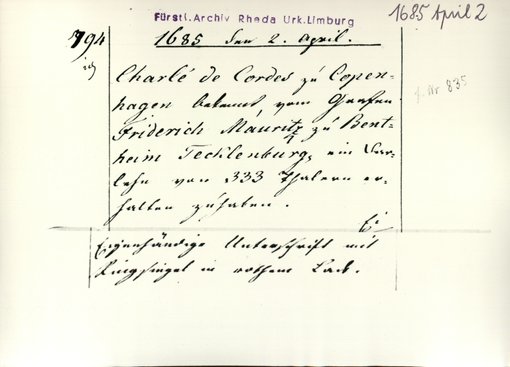 Fürstl. Archiv Rheda Urk. Limburg
1685 April 2
794
1685 den 2. April.
Charlé de Cordes zu Copen-
hagen bekennt vom Grafen
f. Nr 835
Friderich Mauritz zu Bent-
heim Tecklenburg, ein Dar-
lehn von 333 Thalern er-
halten zu haben.
Eigenhändige Unterschrift mit
Ringsiegel in rothem Lack.